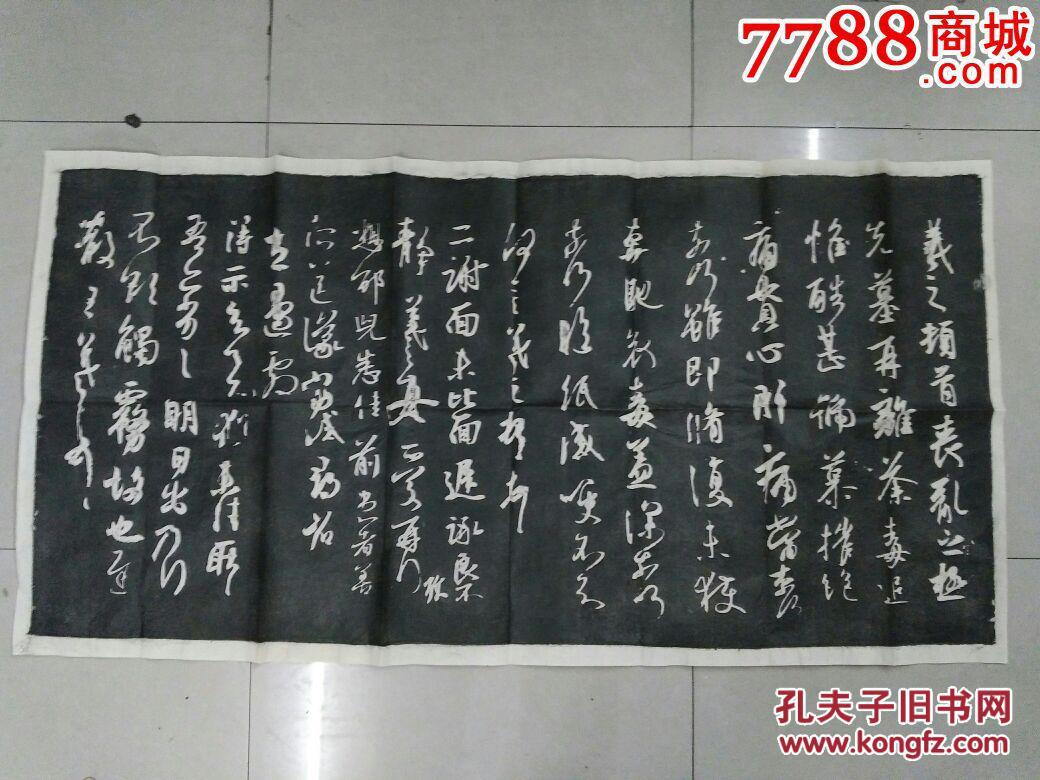 7788商城
.com
羲之頓首喪亂之極
先墓再離荼毒追
惟酷甚號慕摧絕
痛貫心肝痛當奈何
奈何雖即脩復未獲
奔馳哀毒益深奈何
奈何臨紙感哽不知
何言羲之頓首頓首
二謝面未比面遲詠良不
靜羲之女愛再拜
想邵兒悉佳前患者善
所送議當試尋省
左邊劇
得示知足下猶未佳耿耿
吾亦劣劣明日出乃行
不欲觸霧故也遲
散王羲之頓首
孔夫子旧书网
www.kongfz.com